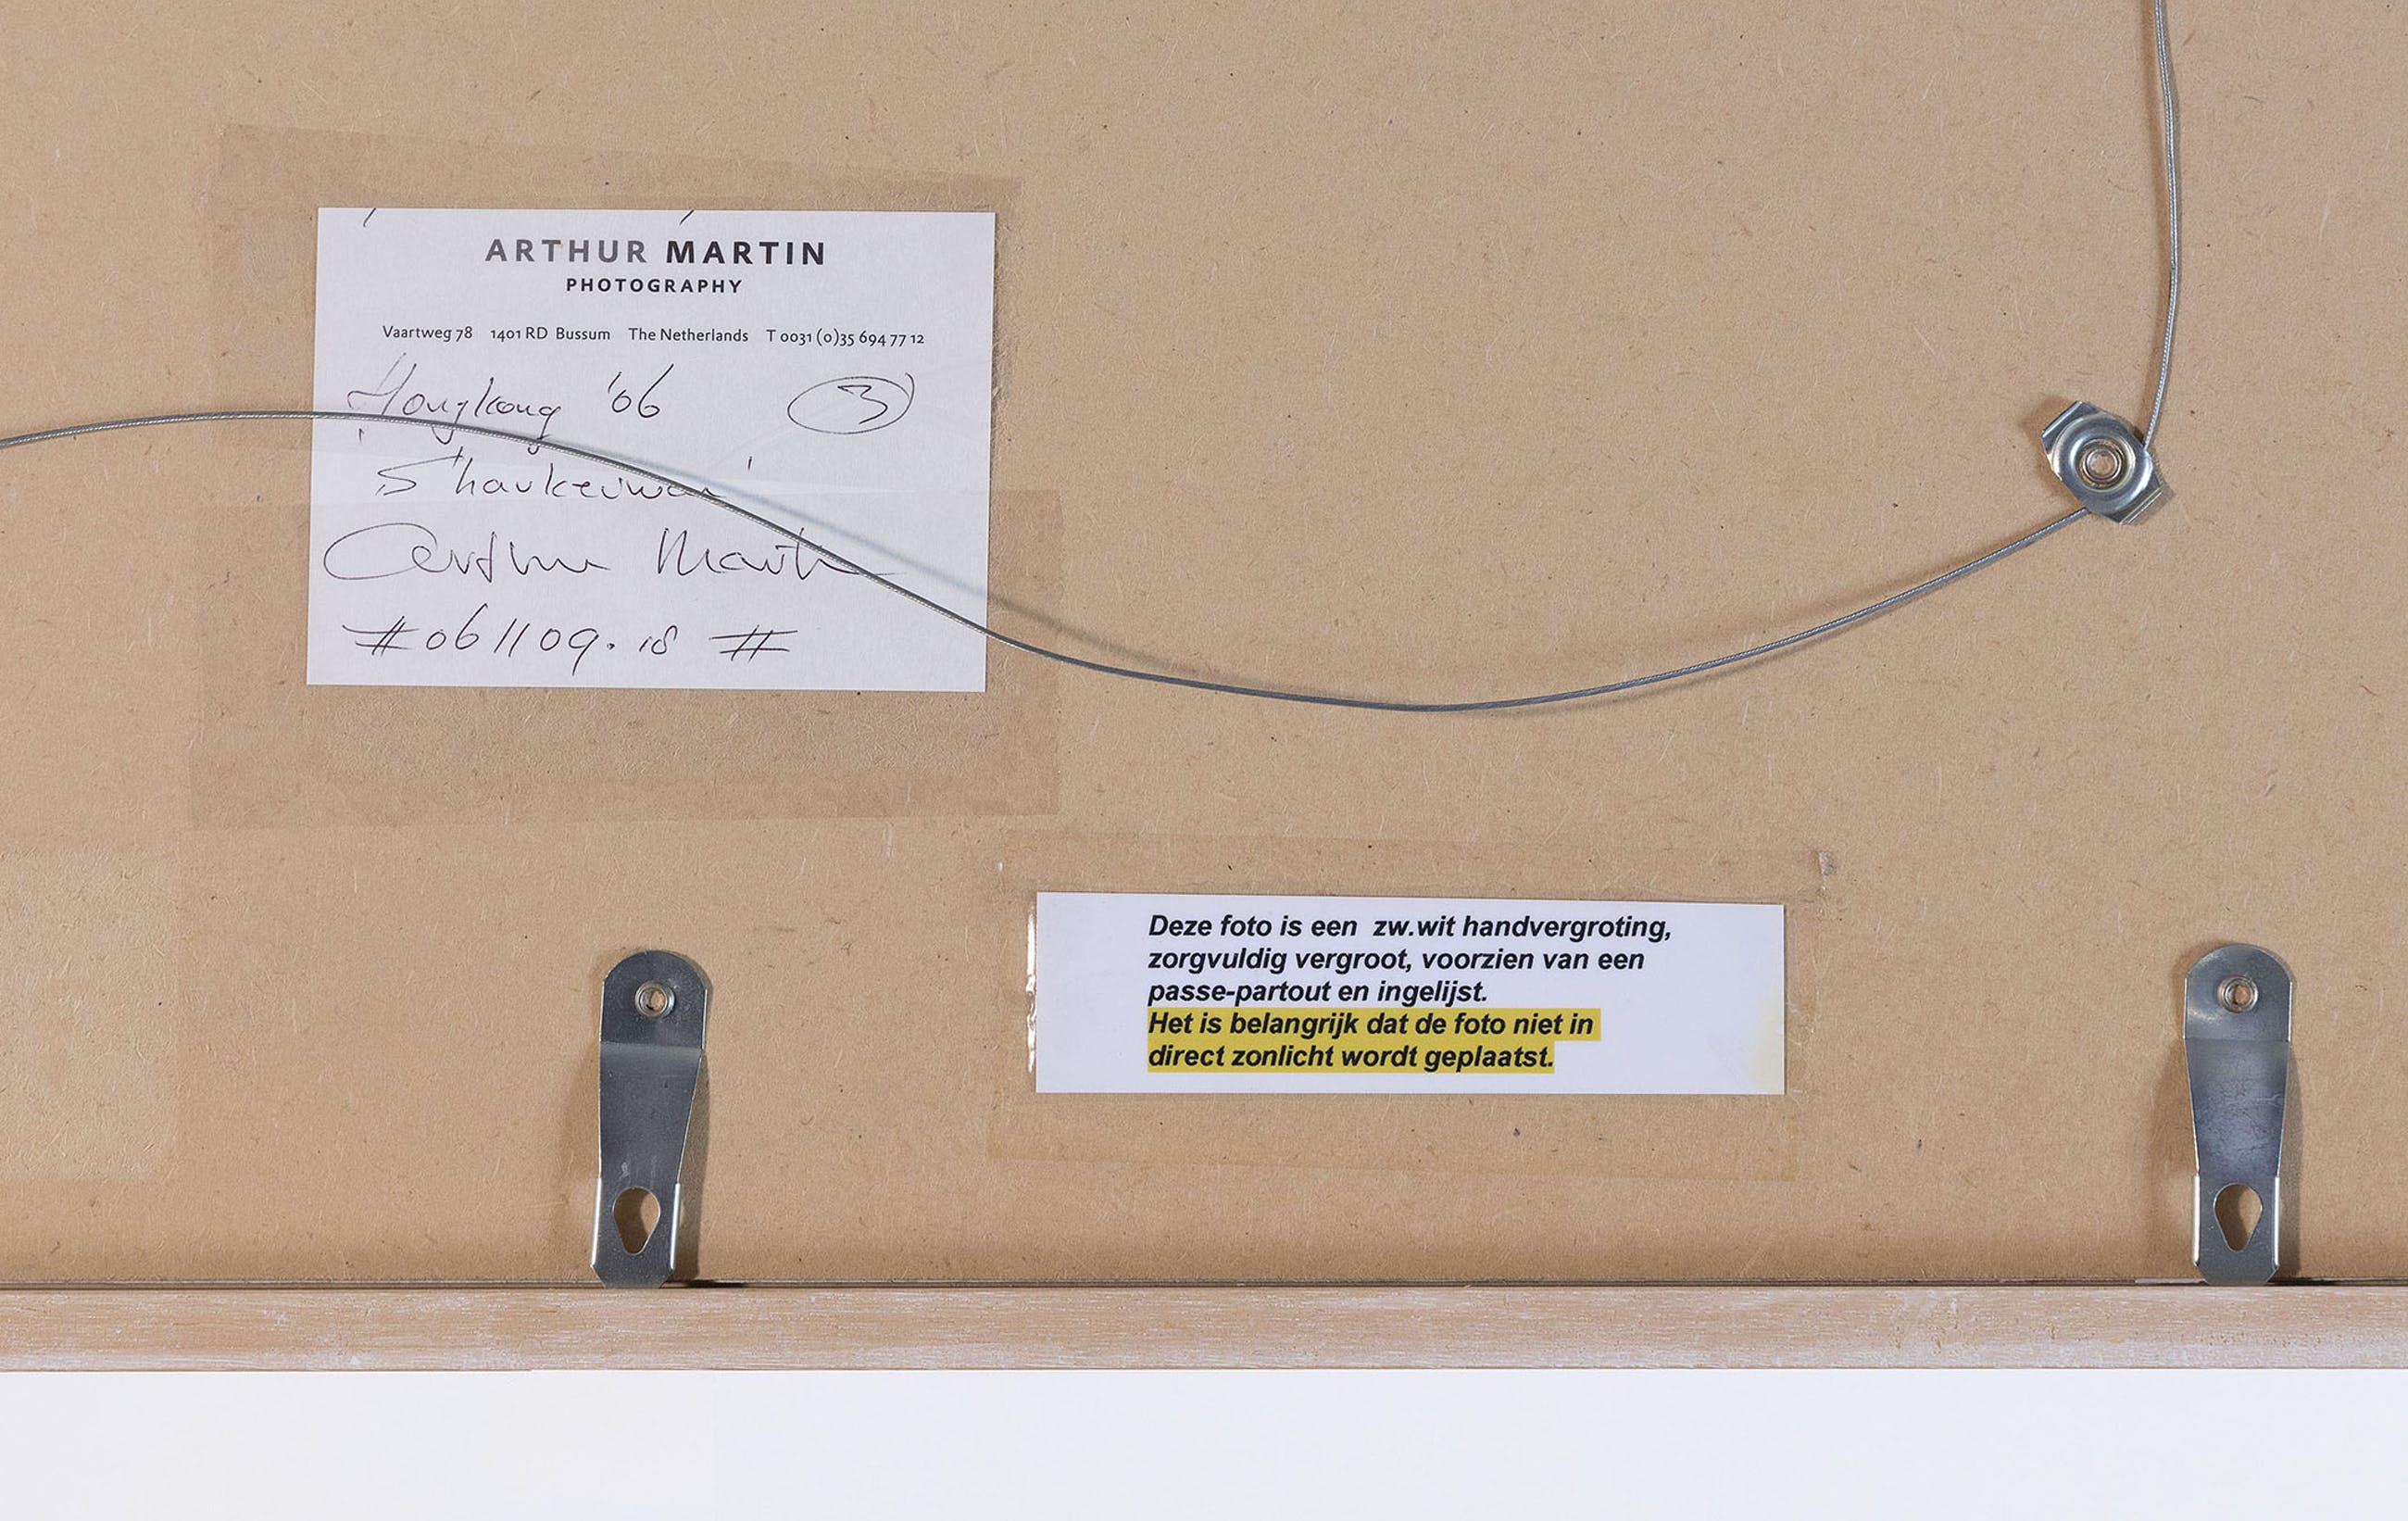 ARTHUR MARTIN
PHOTOGRAPHY
Vaartweg 78 1401 RD Bussum The Netherlands T 0031 (0)35 694 77 12
Hongkong '06 3
Shaukeiwan
Arthur Martin
#061109.18 #
Deze foto is een zw.wit handvergroting,
zorgvuldig vergroot, voorzien van een
passe-partout en ingelijst.
Het is belangrijk dat de foto niet in
direct zonlicht wordt geplaatst.